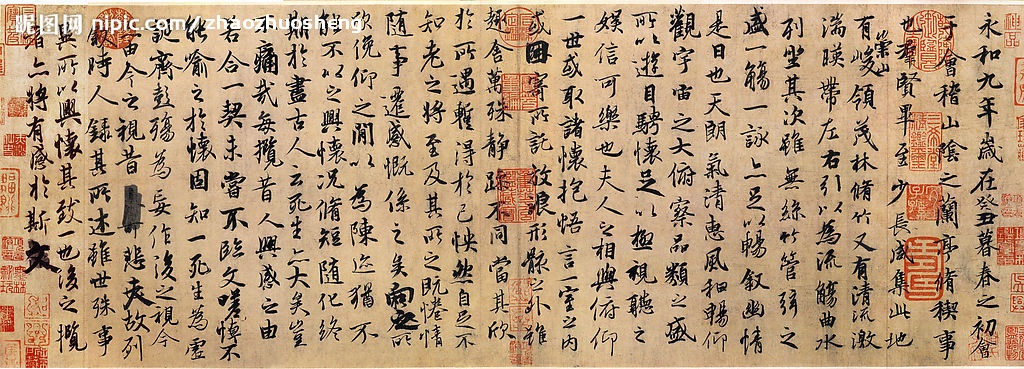 昵图网 nipic.com/zhaozhuosheng
永和九年歲在癸丑暮春之初會
于會稽山陰之蘭亭脩稧事
也羣賢畢至少長咸集此地
有崇山峻領茂林脩竹又有清流激
湍暎帶左右引以為流觴曲水
列坐其次雖無絲竹管弦之
盛一觴一詠亦足以暢敘幽情
是日也天朗氣清惠風和暢仰
觀宇宙之大俯察品類之盛
所以遊目騁懷足以極視聽之
娛信可樂也夫人之相與俯仰
一世或取諸懷抱悟言一室之內
或因寄所託放浪形骸之外雖
趣舍萬殊靜躁不同當其欣
於所遇蹔得於己怏然自足不
知老之將至及其所之既惓情
隨事遷感慨係之矣向之所
欣俛仰之閒以為陳迹猶不
能不以之興懷況脩短隨化終
期於盡古人云死生亦大矣豈
不痛哉每攬昔人興感之由
若合一契未嘗不臨文嗟悼不
能喻之於懷固知一死生為虛
誕齊彭殤為妄作後之視今
亦由今之視昔悲夫故列
敘時人錄其所述雖世殊事
異所以興懷其致一也後之攬
者亦將有感於斯文